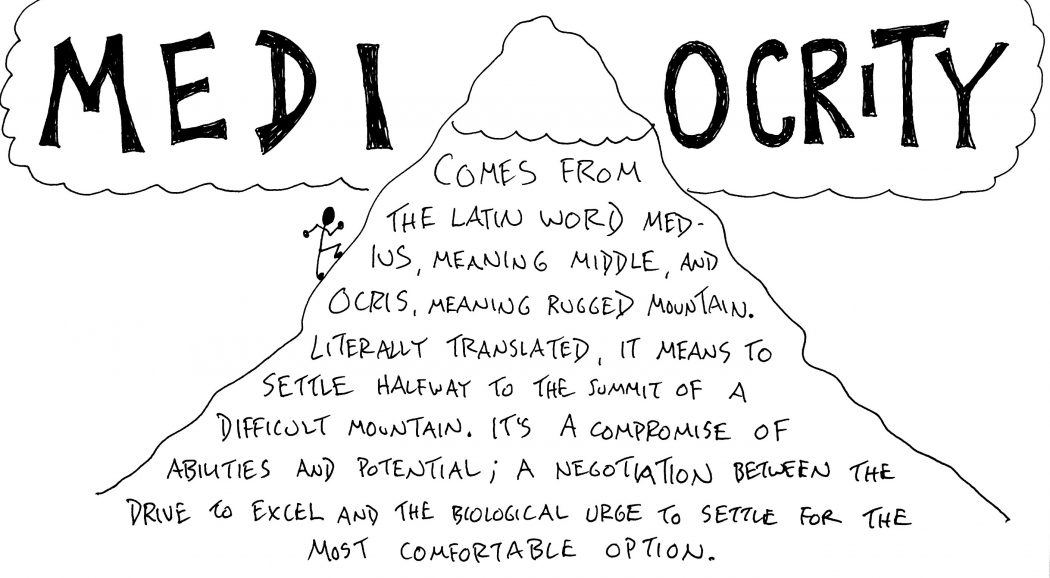 MEDIOCRITY
COMES FROM
THE LATIN WORD MED-
IUS, MEANING MIDDLE, AND
OCRIS, MEANING RUGGED MOUNTAIN.
LITERALLY TRANSLATED, IT MEANS TO
SETTLE HALFWAY TO THE SUMMIT OF A
DIFFICULT MOUNTAIN. IT'S A COMPROMISE OF
ABILITIES AND POTENTIAL; A NEGOTIATION BETWEEN THE
DRIVE TO EXCEL AND THE BIOLOGICAL URGE TO SETTLE FOR THE
MOST COMFORTABLE OPTION.